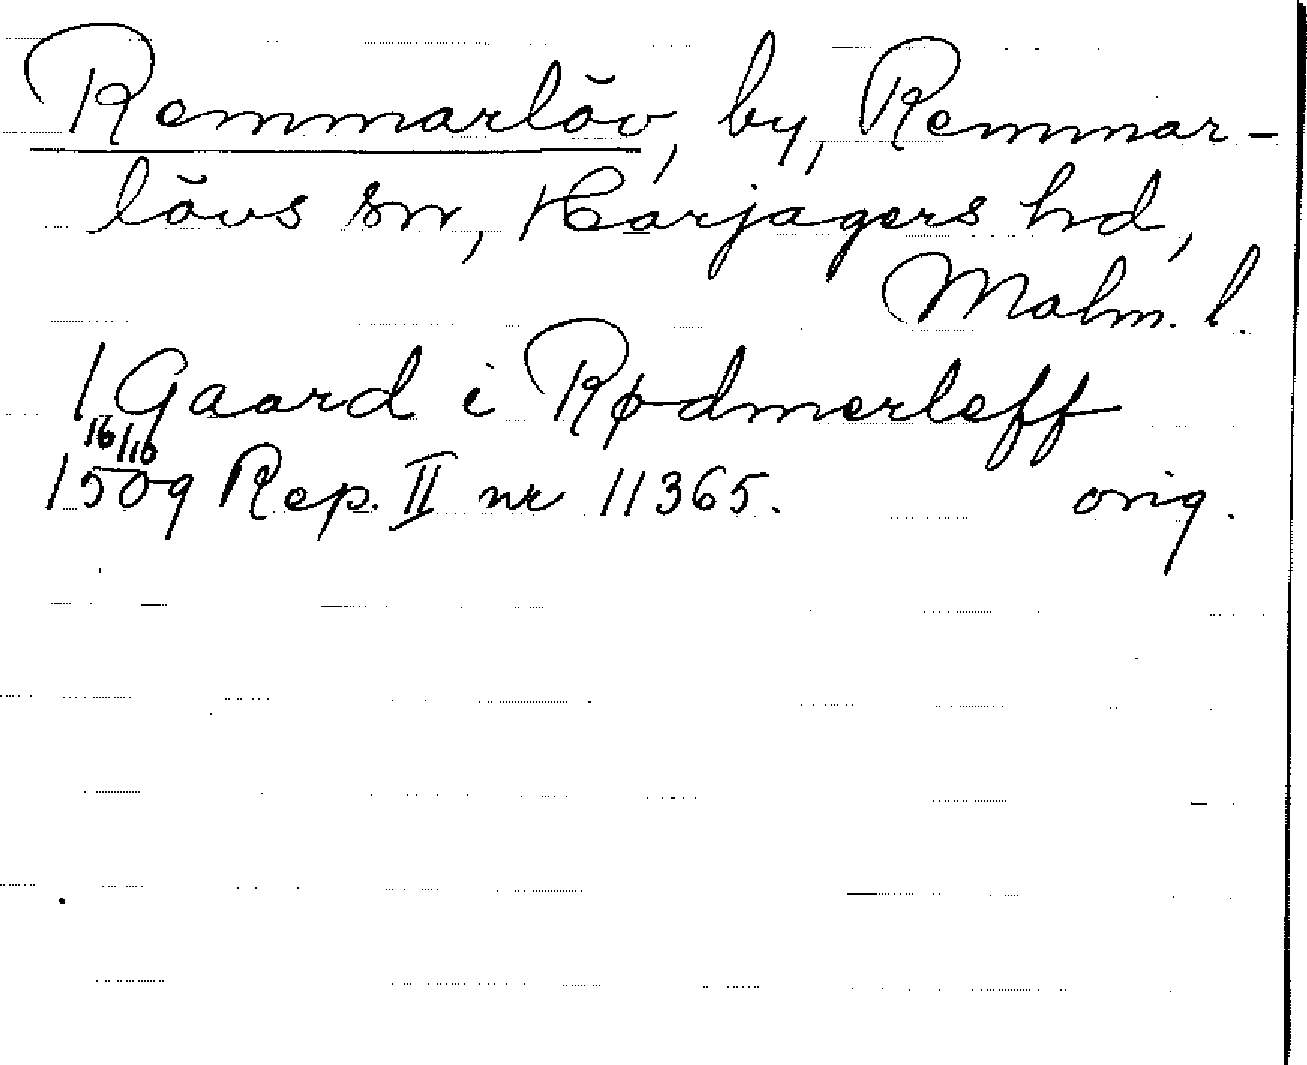 Remmarlöv, by, Remmar-
lövs sn, Harjagers hd,
Malm. l.
1 Gaard i Rødmerleff
16/10
1509 Rep. II nr 11365. orig.